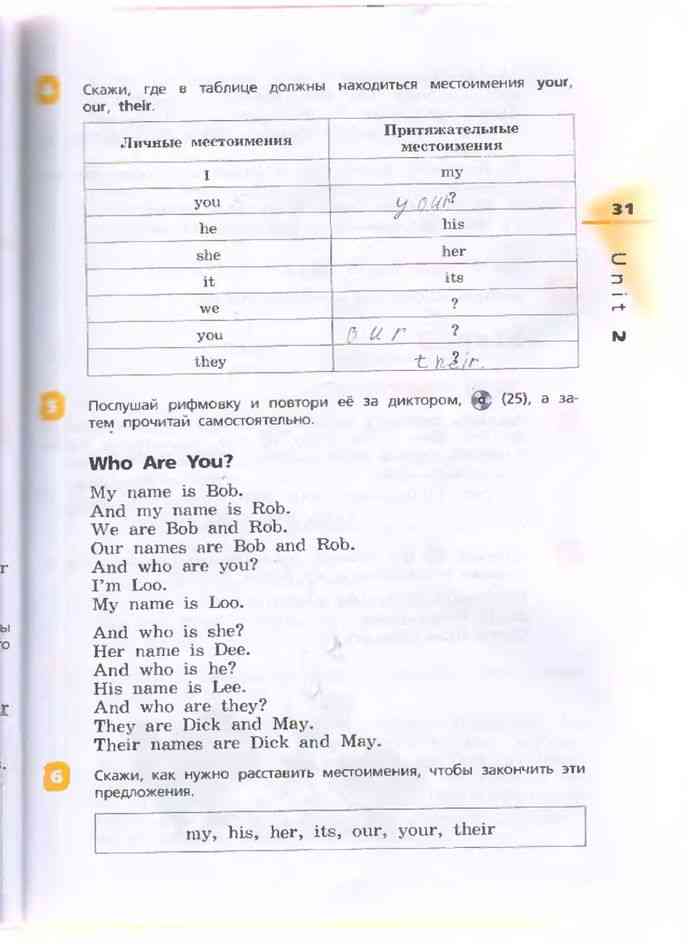 4 Скажи, где в таблице должны находиться местоимения your,
our, their.
Личные местоимения Притяжательные местоимения
I my
you your ?
he his
she her
it its
we ?
you our ?
they their ?
31
Unit 2
5 Послушай рифмовку и повтори её за диктором, (25), а за-
тем прочитай самостоятельно.
Who Are You?
My name is Bob.
And my name is Rob.
We are Bob and Rob.
Our names are Bob and Rob.
And who are you?
I'm Loo.
My name is Loo.
And who is she?
Her name is Dee.
And who is he?
His name is Lee.
And who are they?
They are Dick and May.
Their names are Dick and May.
6 Скажи, как нужно расставить местоимения, чтобы закончить эти
предложения.
my, his, her, its, our, your, their